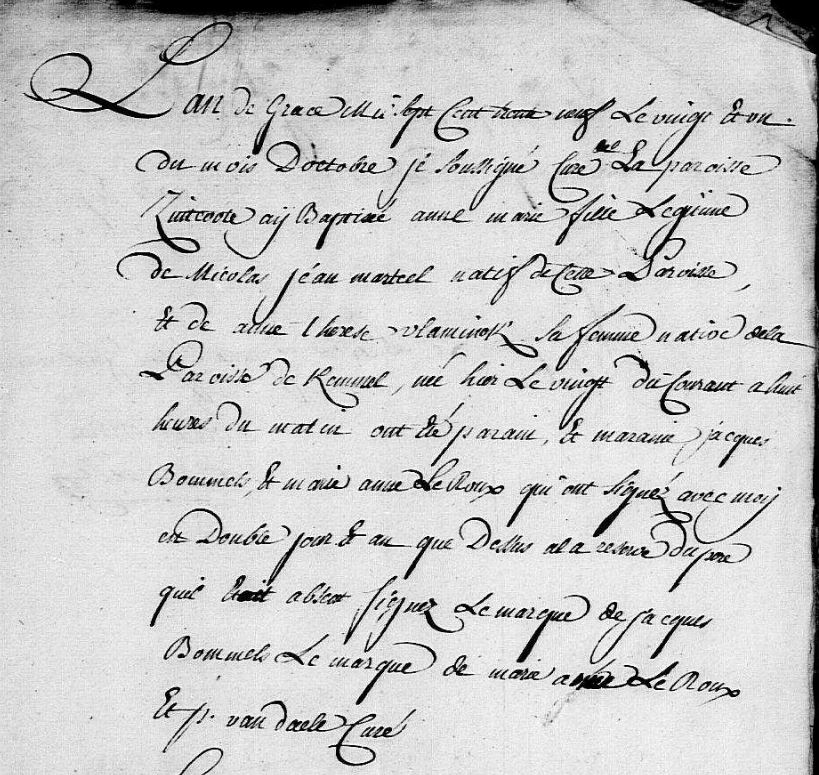 Lan de Grace Mil Sept Cent trente neuf Le vingt Et un.
du mois Doctobre je soussigné Curé de La paroisse
Zuitcoote aij Baptisé anne marie fille Legitime
de Nicolas jéan marteel natif de Cette Paroisse,
Et de anne therese vlaminck sa femme native dela
Paroisse de Kemmel, née hier Le vingt du Courant a huit
heures du matin ont été parain, Et maraine jacques
Bommels, Et marie anne Le Roux qui ont signéz avec moij
en Double jour Et an que Dessus a la reserve du pere
quil Etoit absent signez Le marque de jacques
Bommels Le marque de marie anne Le Roux
Et p. van daele Curé